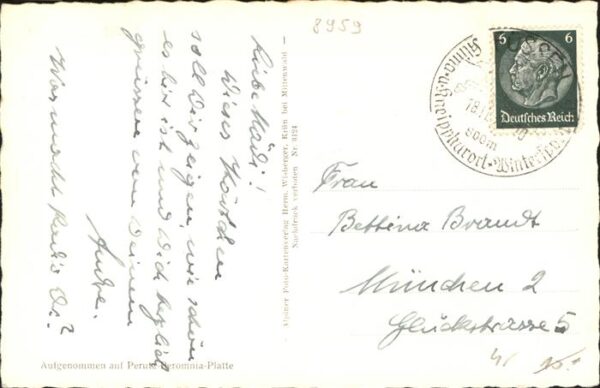 8959
Liebe Mädi!
Dieses Kärtchen
soll Dir zeigen, wie schön
es hier ist und Dich herzlich
grüssen von Deinem
Andre.
Was macht Radio Oe?
Alpiner Foto-Kartenverlag Herm. Wißberger, Krün bei Mittenwald
Nachdruck verboten Nr. 8124
6 6
Deutsches Reich
Klima- u. Kneippkurort - Wintersp
800m
Frau
Bettina Brandt
München 2
Glückstrasse 5
Aufgenommen auf Perutz Peromnia-Platte